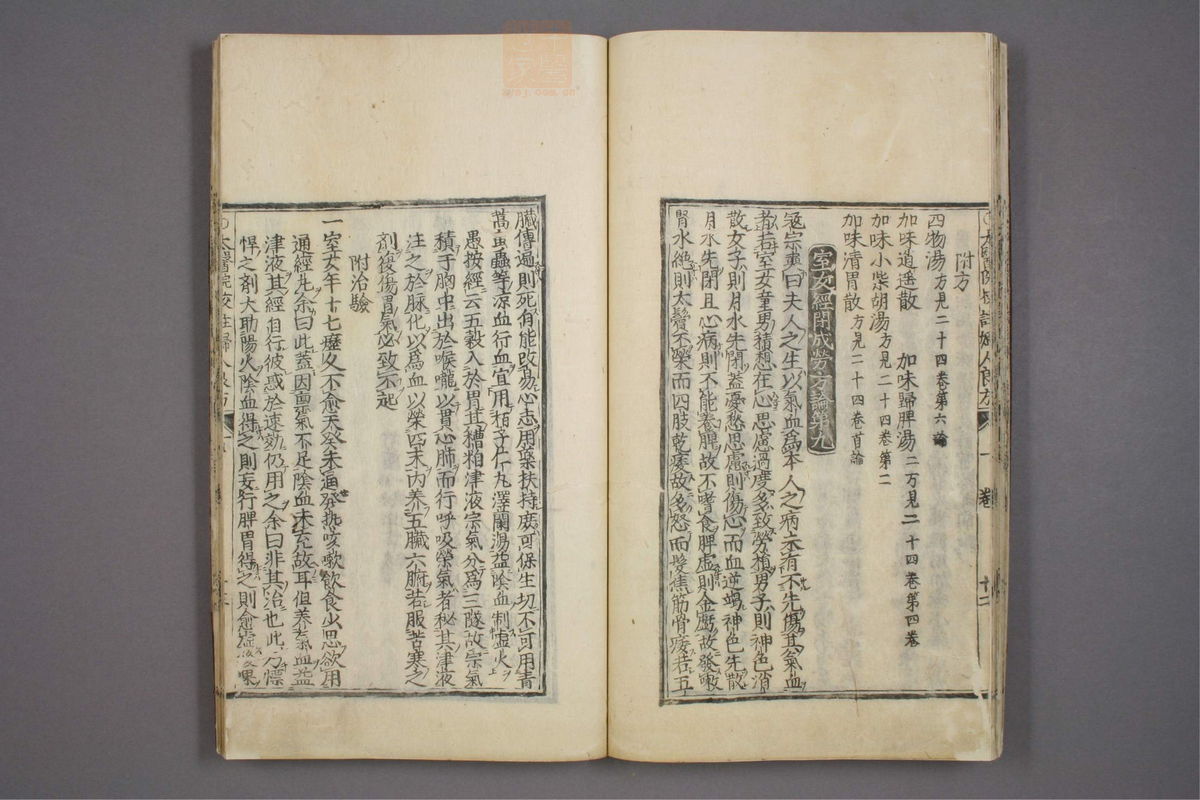 附方
四物湯方見二十四卷第六論
加味逍遥散　加味歸脾湯二方見二十四卷第四卷
加味小柴胡湯方見二十四卷第二
加味清胃散方見二十四卷首論
室女經閉成勞方論第九
寇宗奭曰夫人之生以氣血為本人之病未有不先傷其氣血
者若室女童男積想在心思慮過度多致勞損男子則神色消
散女子則月水先閉蓋憂愁思慮則傷心而血逆竭神色先散
月水先閉且心病則不能養脾故不嗜食脾虛則金虧故發嗽
腎水絶則木氣不榮而四肢乾痿故多怒而髮焦筋骨痿若五
臟傳遍則死有能改易心志用藥扶持庶可保生切不可用青
蒿虻蟲等凉血行血宜用栢子仁丸澤蘭湯益陰血制虛火
愚按經云五穀入於胃其糟粕津液宗氣分為三隧故宗氣
積于胸中出於喉嚨以貫心肺而行呼吸榮氣者秘其津液
注之於脉化以爲血以榮四末内養五臟六腑若服苦寒之
劑復傷胃氣必致不起
附治驗
一室女年十七瘧久不愈天癸未通發熱咳嗽飲食少思欲用
通經丸余曰此蓋因禀氣不足陰血未充故耳但養氣血益
津液其經自行彼惑於速効仍用之余曰非其治也此乃慓
悍之劑大助陽火陰血得之則妄行脾胃得之則愈虛後果